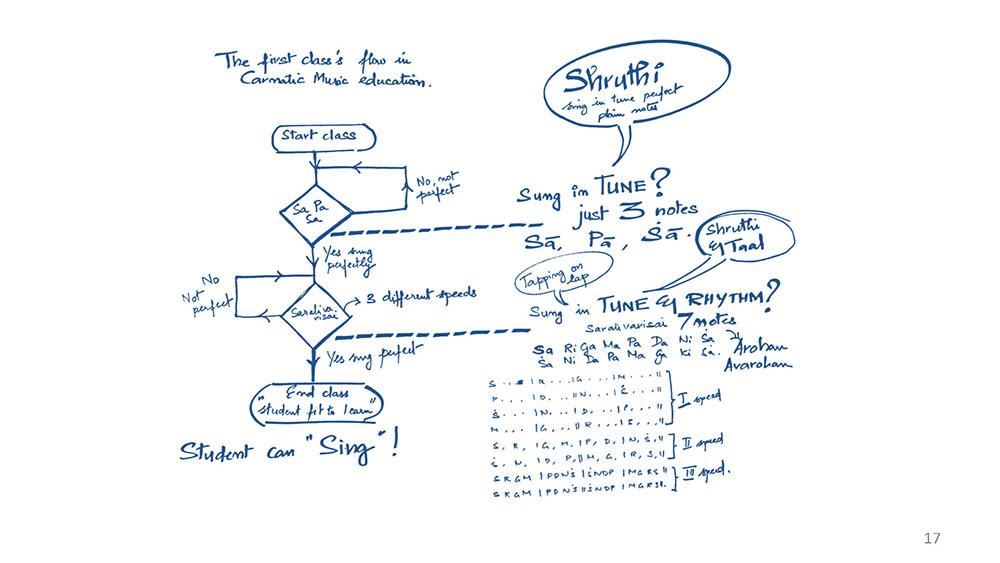 The first class's flow in
Carnatic Music education.
Start class
No, not
perfect
Sa Pa
Sa
Yes sung
perfectly
No
Not
perfect
Saraliva.
risai
3 different speeds
Yes sung perfect
End class
"student fit to learn"
Student can "Sing"!
Shruthi
sing in tune perfect
plain notes
Sung in TUNE?
just 3 notes
Sā, Pā, Ṡā.
Shruthi
& Taal
Tapping on
lap
Sung in TUNE & RHYTHM?
Saralivarisai 7 notes
Sa Ri Ga Ma Pa Da Ni Ṡa
Ṡa Ni Da Pa Ma Ga Ri Sa.
Arohan
Avarohan
S . . . | R . . . | G . . . | M . . . ||
P . . . | D . . . || N . . . | Ṡ . . . ||
Ṡ . . . | N . . . | D . . . | P . . . ||
M . . . | G . . . || R . . . | S . . . ||
I speed
S, R, | G, M, | P, D, | N, Ṡ, ||
Ṡ, N, | D, P, || M, G, | R, S, ||
II speed
S R G M | P D N Ṡ | Ṡ N D P | M G R S ||
S R G M | P D N Ṡ || Ṡ N D P | M G R S ||
III speed.
17